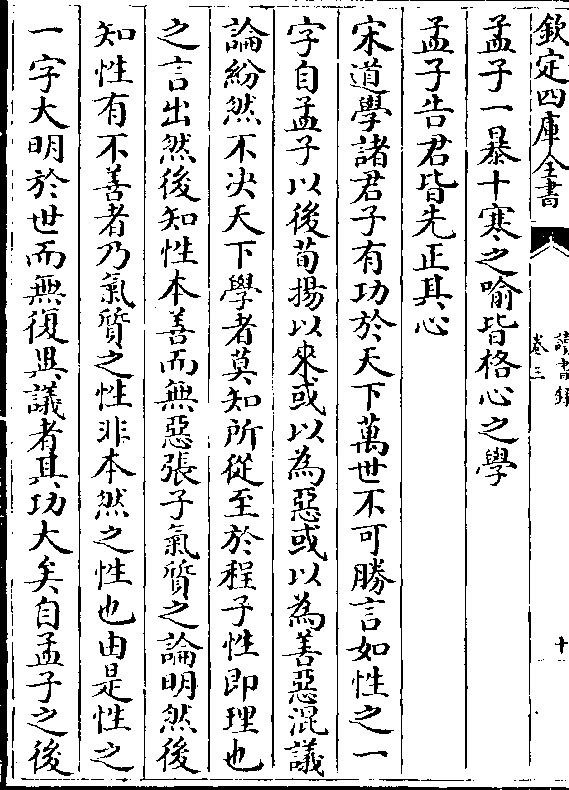 欽定四庫全書
讀書錄
卷三
十
孟子一暴十寒之喻皆格心之學
孟子告君皆先正其心
宋道學諸君子有功於天下萬世不可勝言如性之一
字自孟子以後荀揚以來或以為惡或以為善惡混議
論紛然不决天下學者莫知所從至於程子性即理也
之言出然後知性本善而無惡張子氣質之論明然後
知性有不善者乃氣質之性非本然之性也由是性之
一字大明於世而無復異議者其功大矣自孟子之後